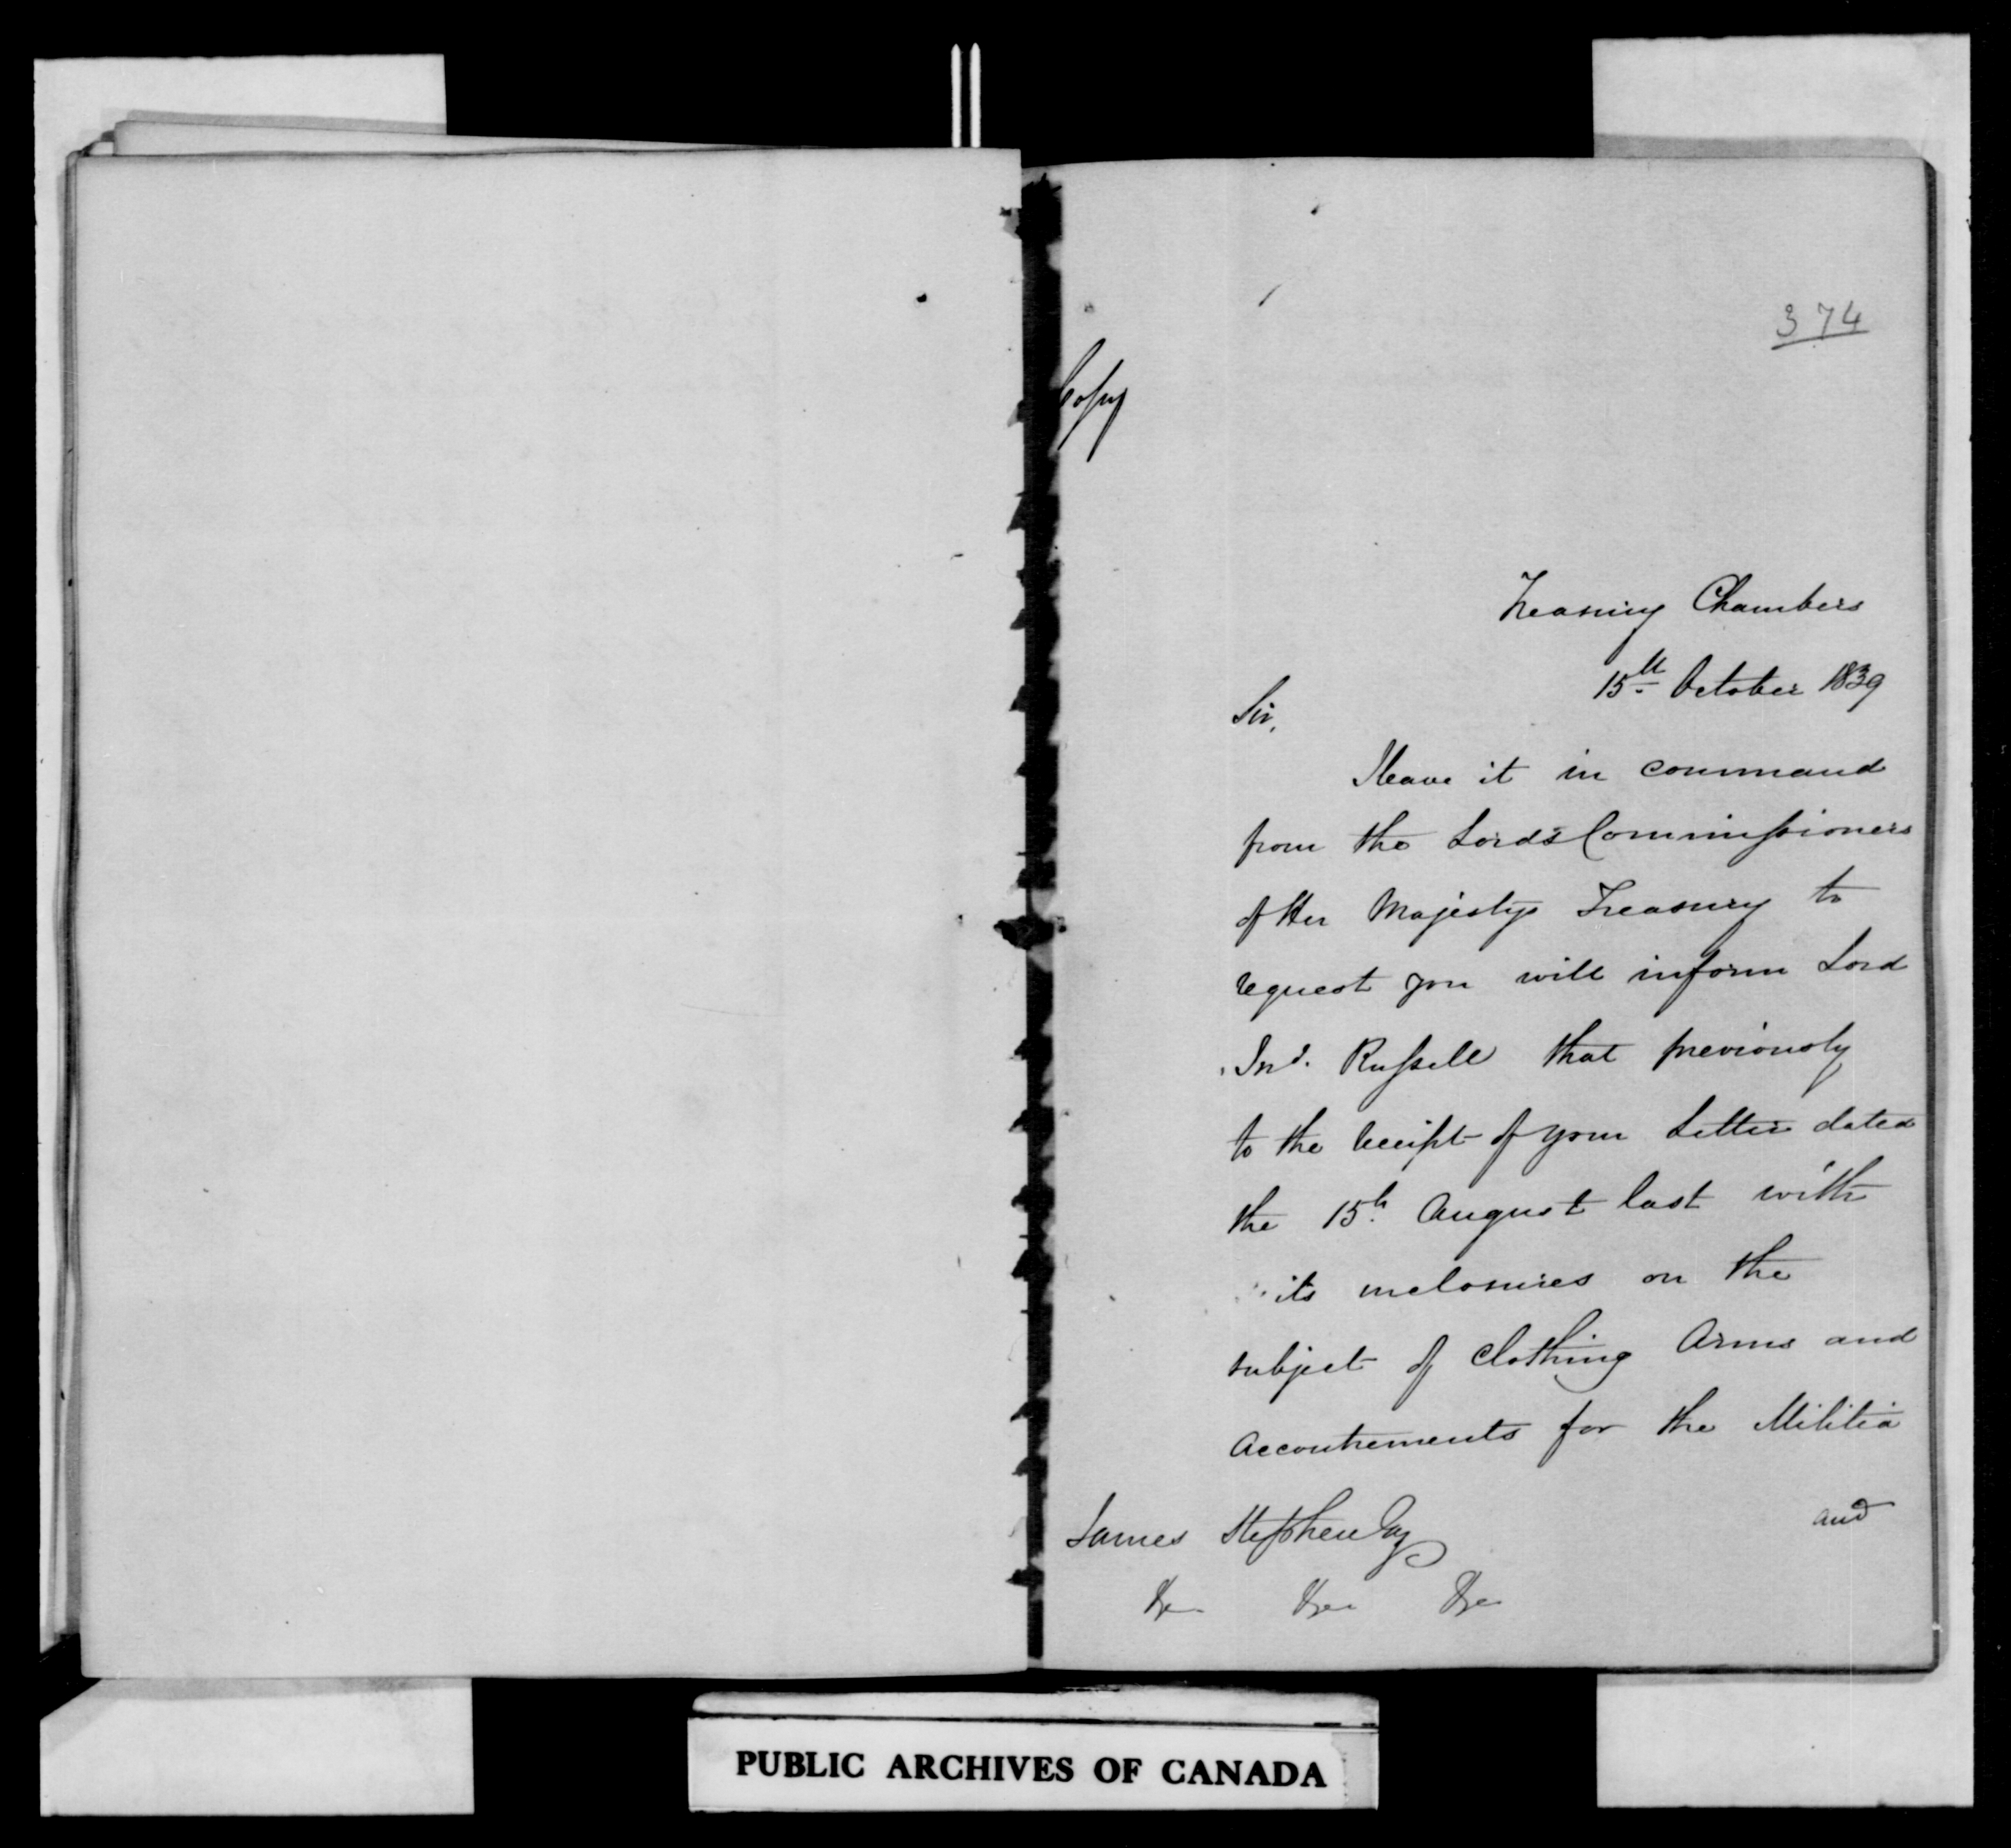 374
Copy
Treasury Chambers
15th October 1839
Sir,
I have it in command
from the Lords Commissioners
of Her Majestys Treasury to
request you will inform Lord
Jno. Russell that previously
to the receipt of your Letter dated
the 15th August last with
its inclosures on the
subject of Clothing Arms and
Accoutrements for the Militia
and
James Stephen Esq
&c &c &c
PUBLIC ARCHIVES OF CANADA